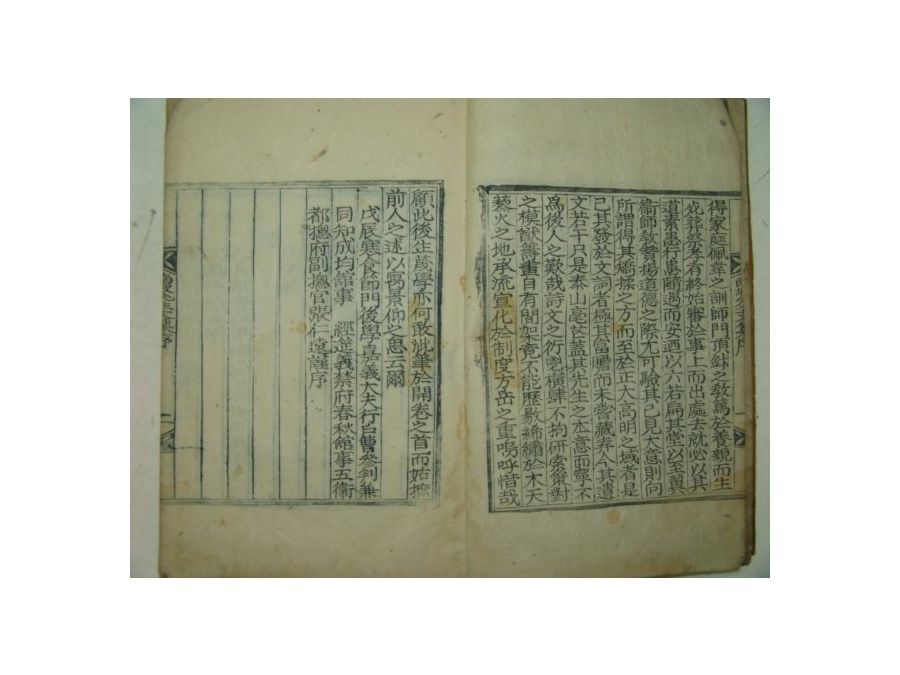 得家庭佩韋之訓師門頂針之敎篤於養親而生
死葬祭孝有終始審於事上而出處去就必以其
道素患行患隨遇而安迺以六若扁其堂以至翼
衛師敎贊揚道德之際尤可驗其已見大意則向
所謂得其矯揉之方而至於正大高明之域者是
已其發於文詞者極其富贍而未嘗藏弆人其遺
文若干只是泰山毫芒蓋其先生之本意而寧不
爲後人之歎哉詩文之衍艶橫肆不拘硏索策對
之模猷籌畫自有間架竟不能歷敭綿繡於木天
藜火之地承流宣化於制閫方岳之重嗚呼惜哉
顧此後生蔑學亦何敢泚筆於開卷之首而姑摭
前人之述以寓景仰之思云爾
戊辰寒食節門後學嘉義大夫行戶曹參判兼
同知成均舘事 經筵義禁府春秋舘事五衛
都摠府副摠官張仁遠謹序